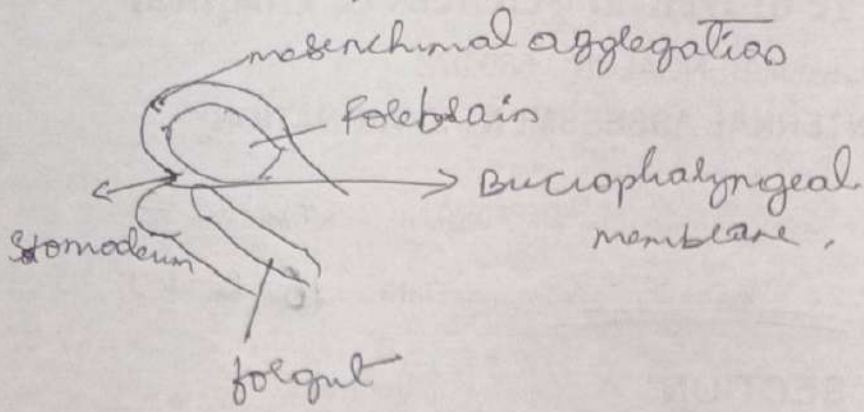 mesenchymal aggregation
Forebrain
Buccopharyngeal
membrane.
Stomodeum
foregut